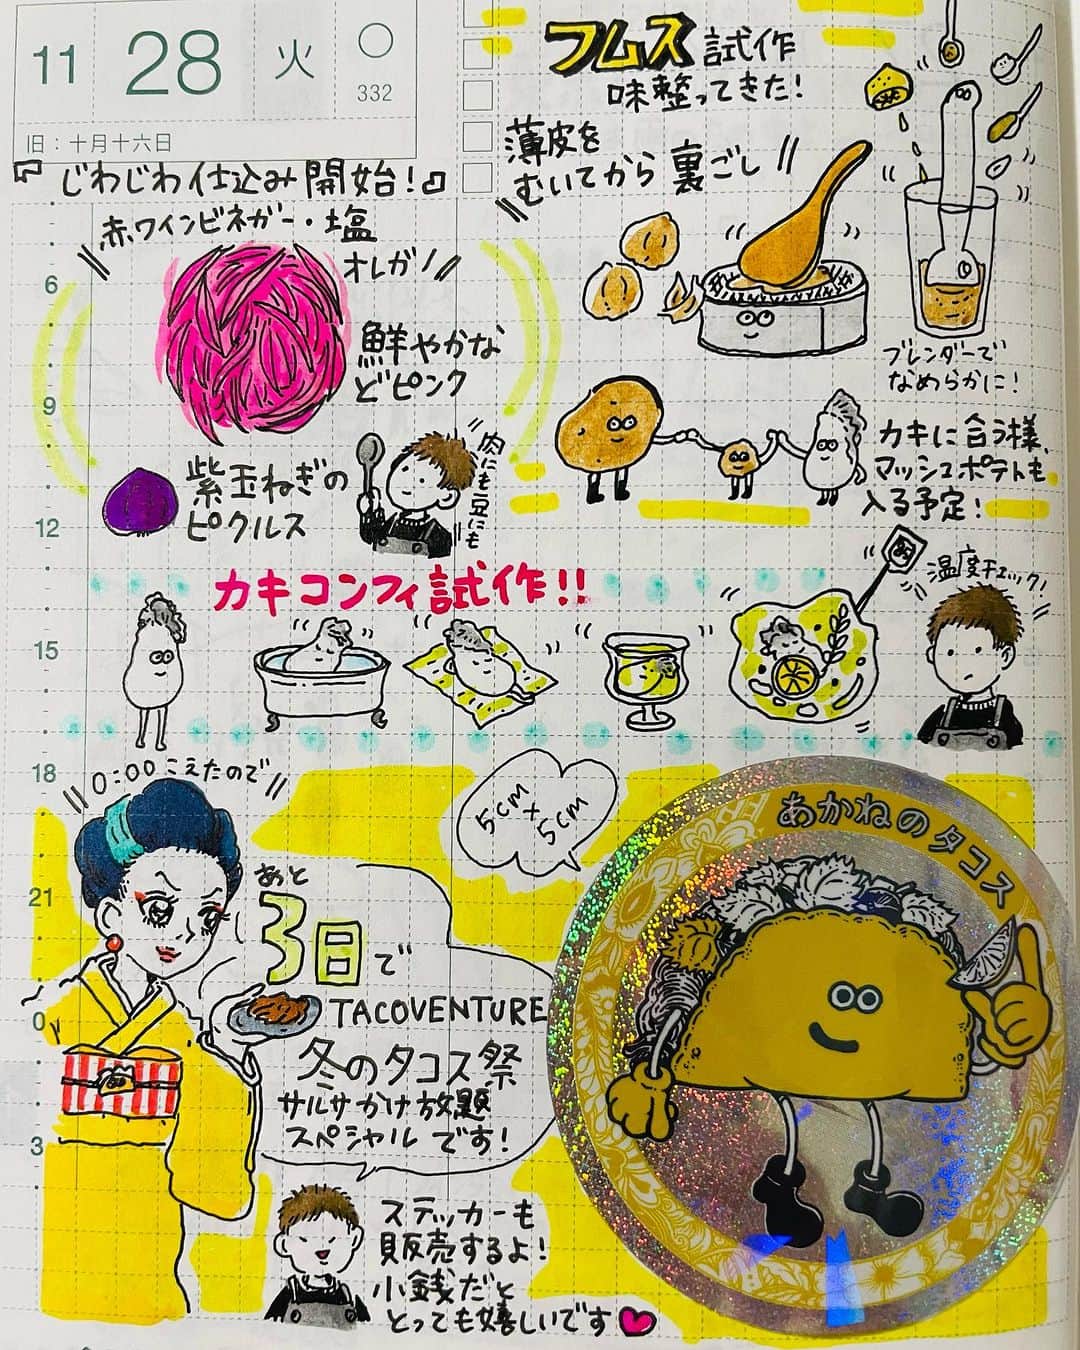 11 28 火
332
旧：十月十六日
『じわじわ仕込み開始！』
赤ワインビネガー・塩
オレガノ
鮮やかな
どピンク
紫玉ねぎの
ピクルス
肉にも豆にも
フムス試作
味整ってきた！
薄皮を
むいてから裏ごし
ブレンダーで
なめらかに！
カキに合う様、
マッシュポテトも
入る予定！
カキコンフィ試作！！
温度チェック！
6
9
12
15
18
21
0
3
0:00こえたので
あと
3日で
TACOVENTURE
冬のタコス祭
サルサかけ放題
スペシャルです！
5cm
×
5cm
あかねのタコス
ステッカーも
販売するよ！
小銭だと
とっても嬉しいです